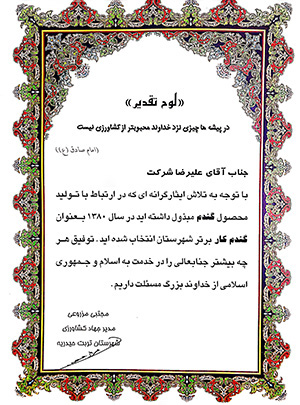 «لوح تقدیر»
در پیشه ها چیزی نزد خداوند محبوبتر از کشاورزی نیست
(امام صادق (ع))
جناب آقای علیرضا شرکت
با توجه به تلاش ایثارگرانه ای که در ارتباط با تولید
محصول گندم مبذول داشته اید در سال ۱۳۸۰ بعنوان
گندم کار برتر شهرستان انتخاب شده اید. توفیق هر
چه بیشتر جنابعالی را در خدمت به اسلام و جمهوری
اسلامی از خداوند بزرگ مسئلت داریم.
مجتبی مزروعی
مدیر جهاد کشاورزی
شهرستان تربت حیدریه